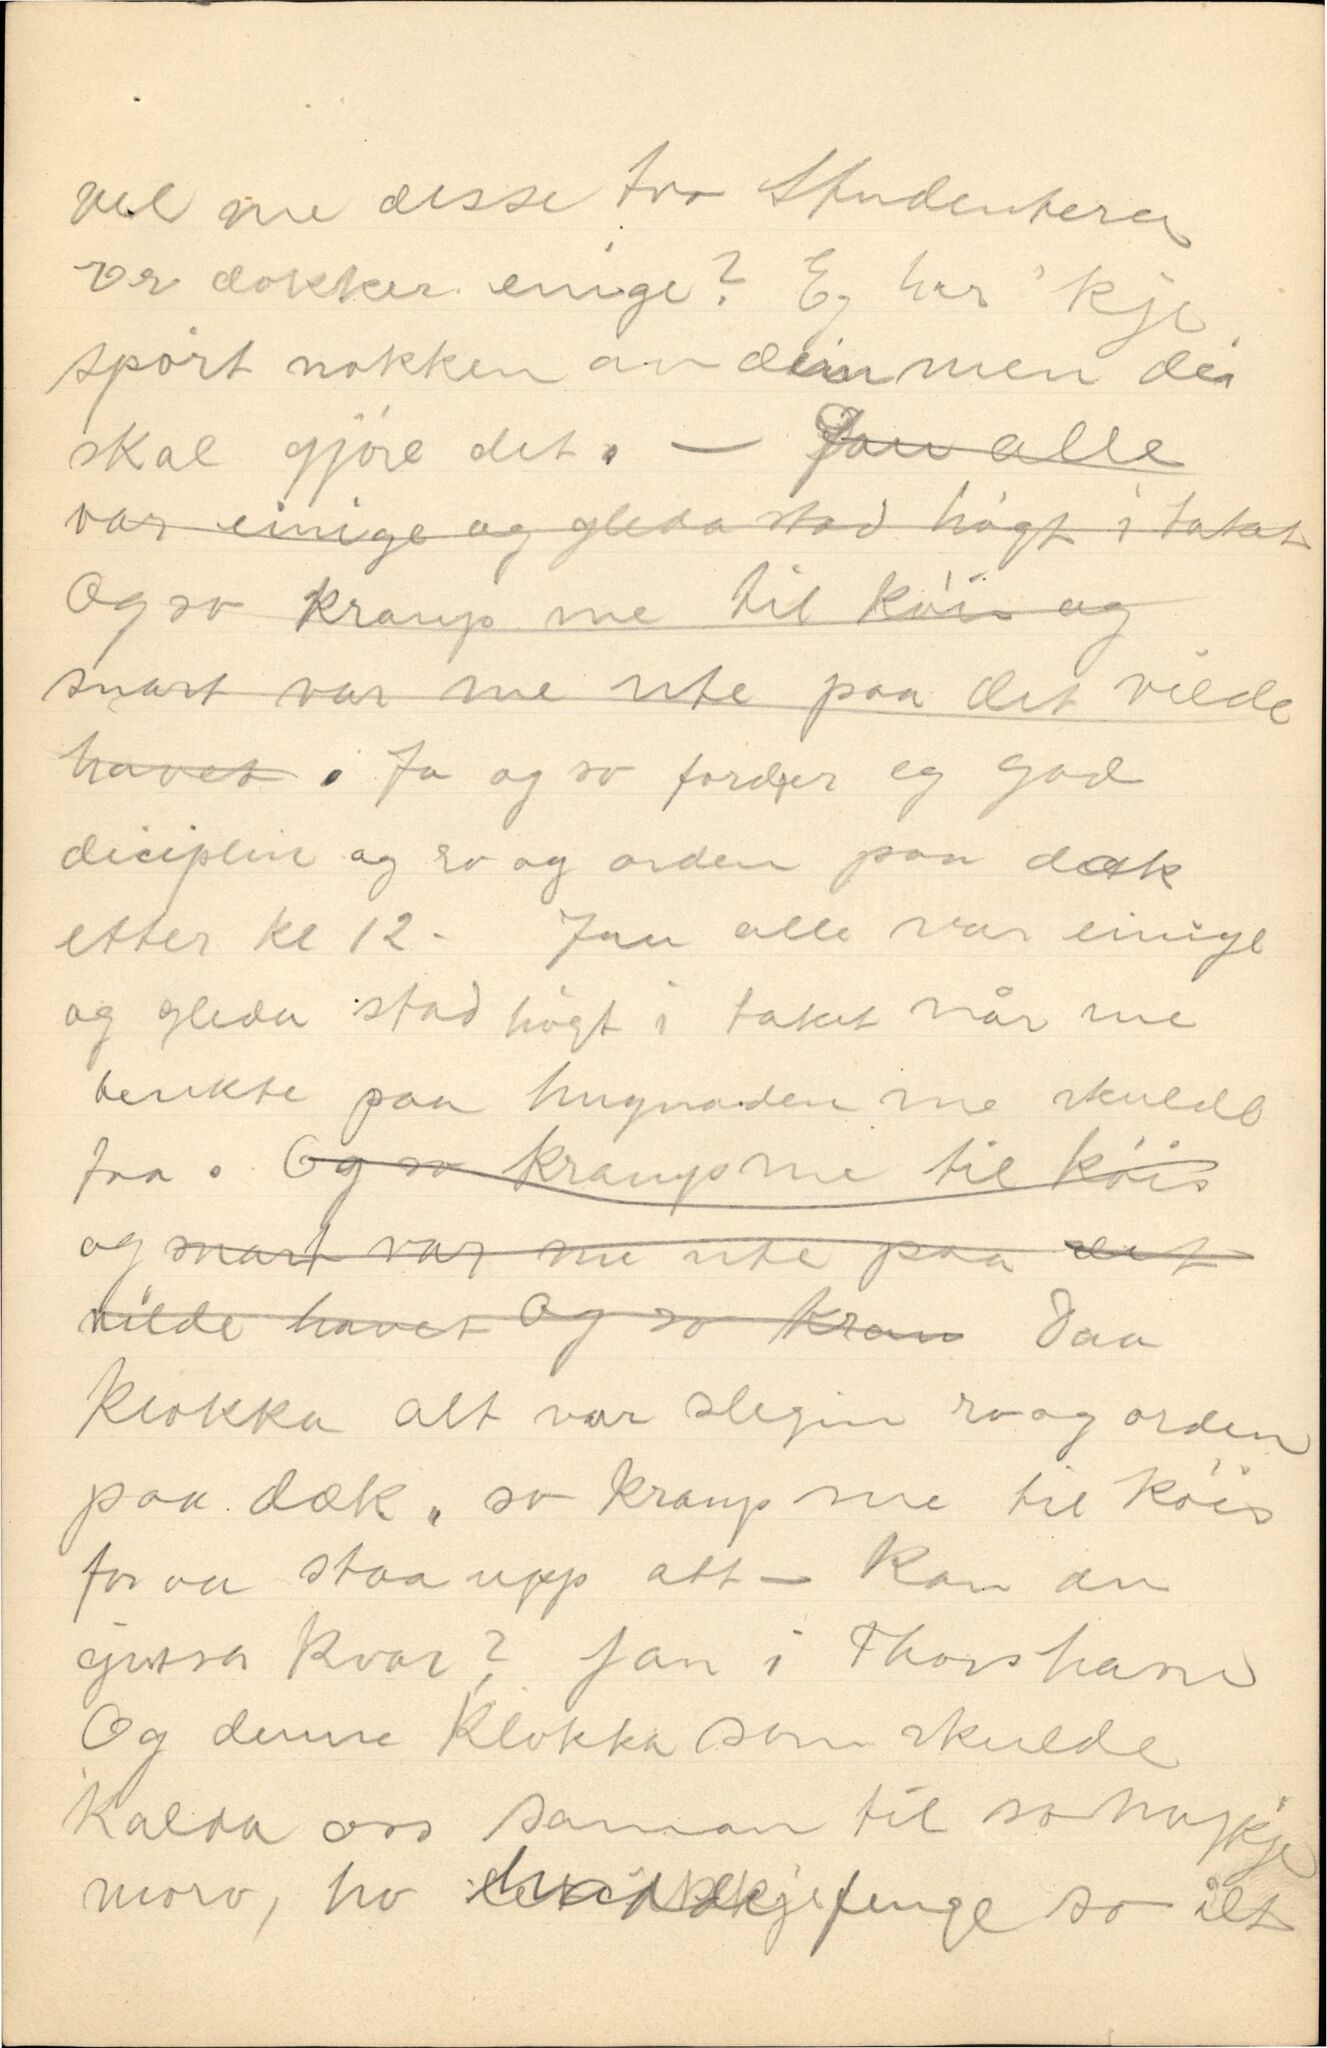 vel me desse tvo Studentera
Er dokker einige? Eg har 'kje
spört nokken av dein men dei
skal gjöre det. — Jau alle
var einige og gleda stod högt i taket
Og so kraup me til köis og
snart var me ute paa det vilde
havet. Ja og so fordrer eg god
diciplin og ro og orden paa dæk
etter kl 12 - Jau alle var einige
og gleda stod högt i taket når me
tenkte paa hugnaden me skulde
faa. Og so kraup me til köis
og snart var me ute paa det
vilde havet Og so krau Daa
klokka alt var slegin ro og orden
paa dæk, so kraup me til köis
for aa staa upp att - Kan du
gjussa kvar? Jau i Thorshavn
Og denne klokka som skulde
kalda oss saman til so mykje
moro, ho fenge so ilt